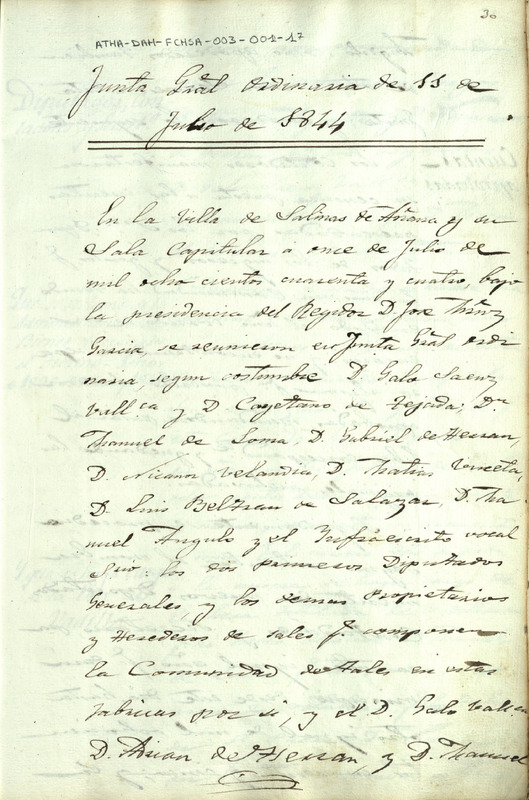 30
ATHA-DAH-FCHSA-003-001-17
Junta Gral ordinaria de 11 de
Julio de 1844
En la Villa de Salinas de Añana y su
Sala Capitular á once de Julio de
mil ocho cientos cuarenta y cuatro, bajo
la presidencia del Regidor D. Jose
Garcia, se reunieron en Junta Gral ordi
naria, segun costumbre D. Galo Saenz
y D. Cayetano de Tejada, Dn
Manuel de Loma, D. Gabriel de Herran,
D. Nicanor Velandia, D. Matias Urueta,
D. Luis Beltran de Salazar, D. Ma
nuel Angulo y el Infraescrito vocal
Srio. los dos primeros Diputados
Generales, y los demas Propietarios
y Herederos de sales q. componen
la Comunidad de tales en estas
fabricas por si, y el D. Galo
D. de Herran, y D. Manuel